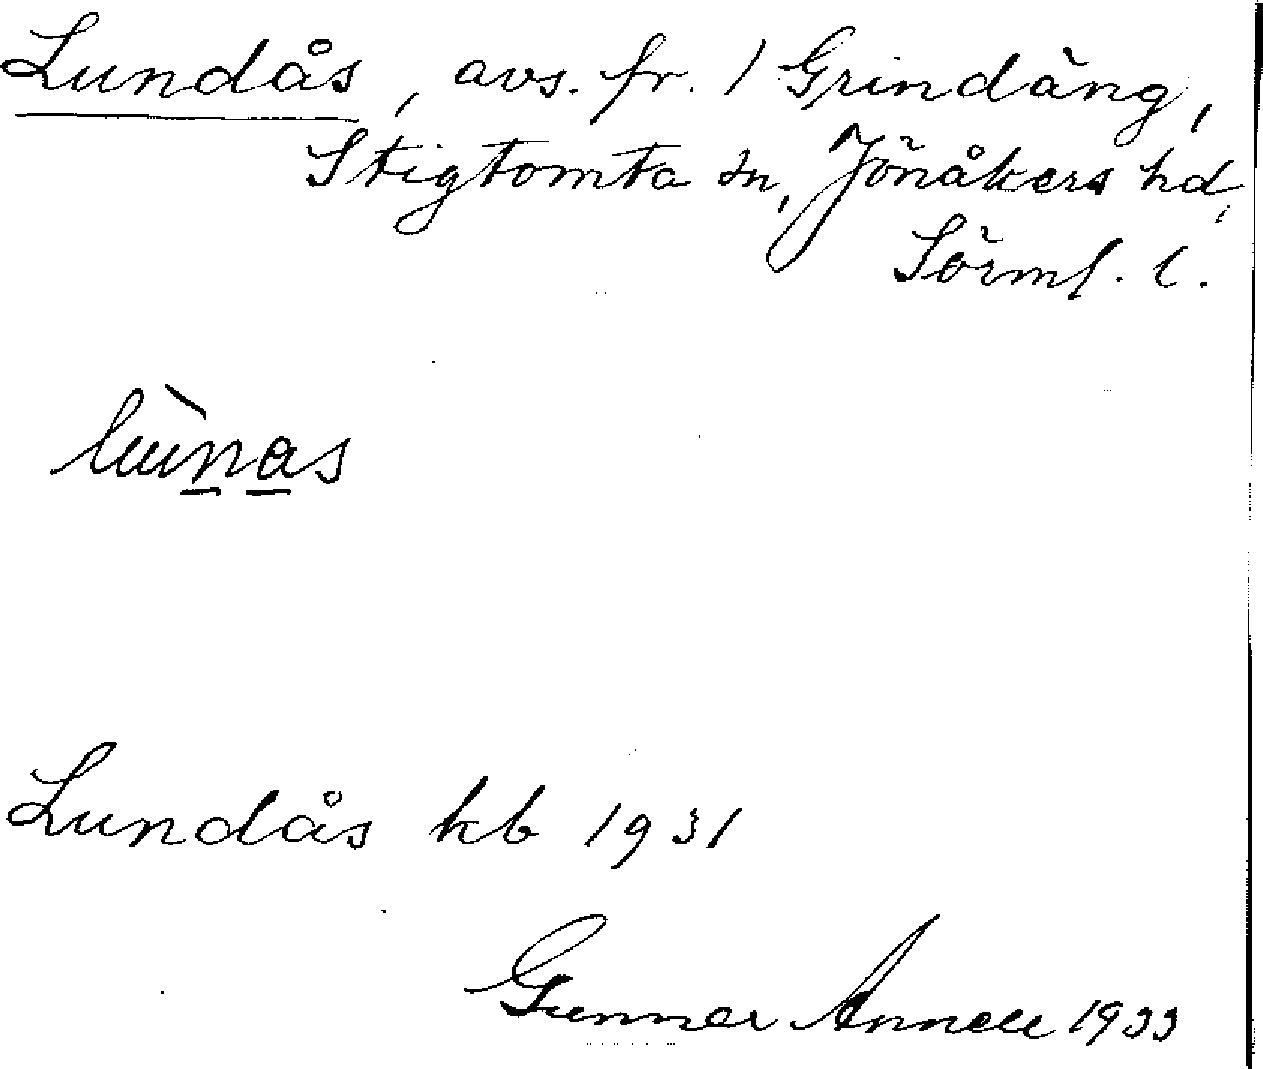 Lundås, avs. fr. 1 Grindäng,
Stigtomta sn, Jönåkers hd,
Sörml. l.
lùnas
Lundås kb 1931
Gunnar Annell 1933